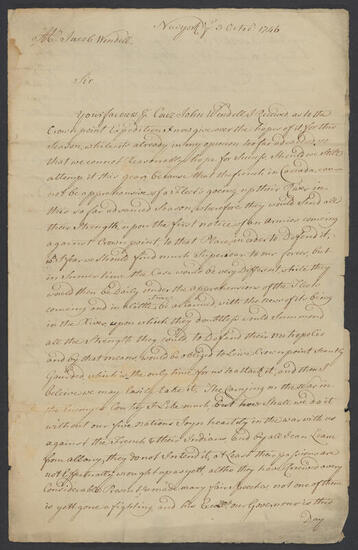 Newyork ye 3 Octor. 1746
Mr. Jacob Wendell.
Sir
Your favour ℔ Coz John Wendell I Receved as to the
Crown point Expedition I now give over the hopes of it for this
Season, while it is already in my opinion too far advanced
that we cannot reasonably hope for Success Should we Still
attempt it this year, because that the french in Canada can
not be apprehensive of a Fleets going up their River in
this so far advanced Season, wherefore they would Send all
their Strength upon the first notice of an Armies coming
against Crown point, to that Place in order to Defend it,
wch. I fear we should find much Superour to our forces, but
in Summer time the Case would be very Different while they
would then be Daily under the apprehensions of the Fleets
coming and in a little time be alarmed with the news of its being
in the River, upon which they doubtless would Summond
all the Strength they could to Defend their metropolies
and by that means would be obliged to Leave Crown point Slenderly
Guarded which is the only time for us to attack it, and then I
believe we may Easily take it. The Carrying on the War in
the Enemys Country I Like much, but how Shall we do it
without our five nations Joyn heartely in the war with us
against the French & their Indians and by all I can Learn
from albany, they do not Intend it, at Least their passions are
not Effectually wrought up as yett, altho they have Receved very
Considerable Presents & made many fair Speeches not one of them
is yett gone a fighting and his Excely. our Governour is this
Day